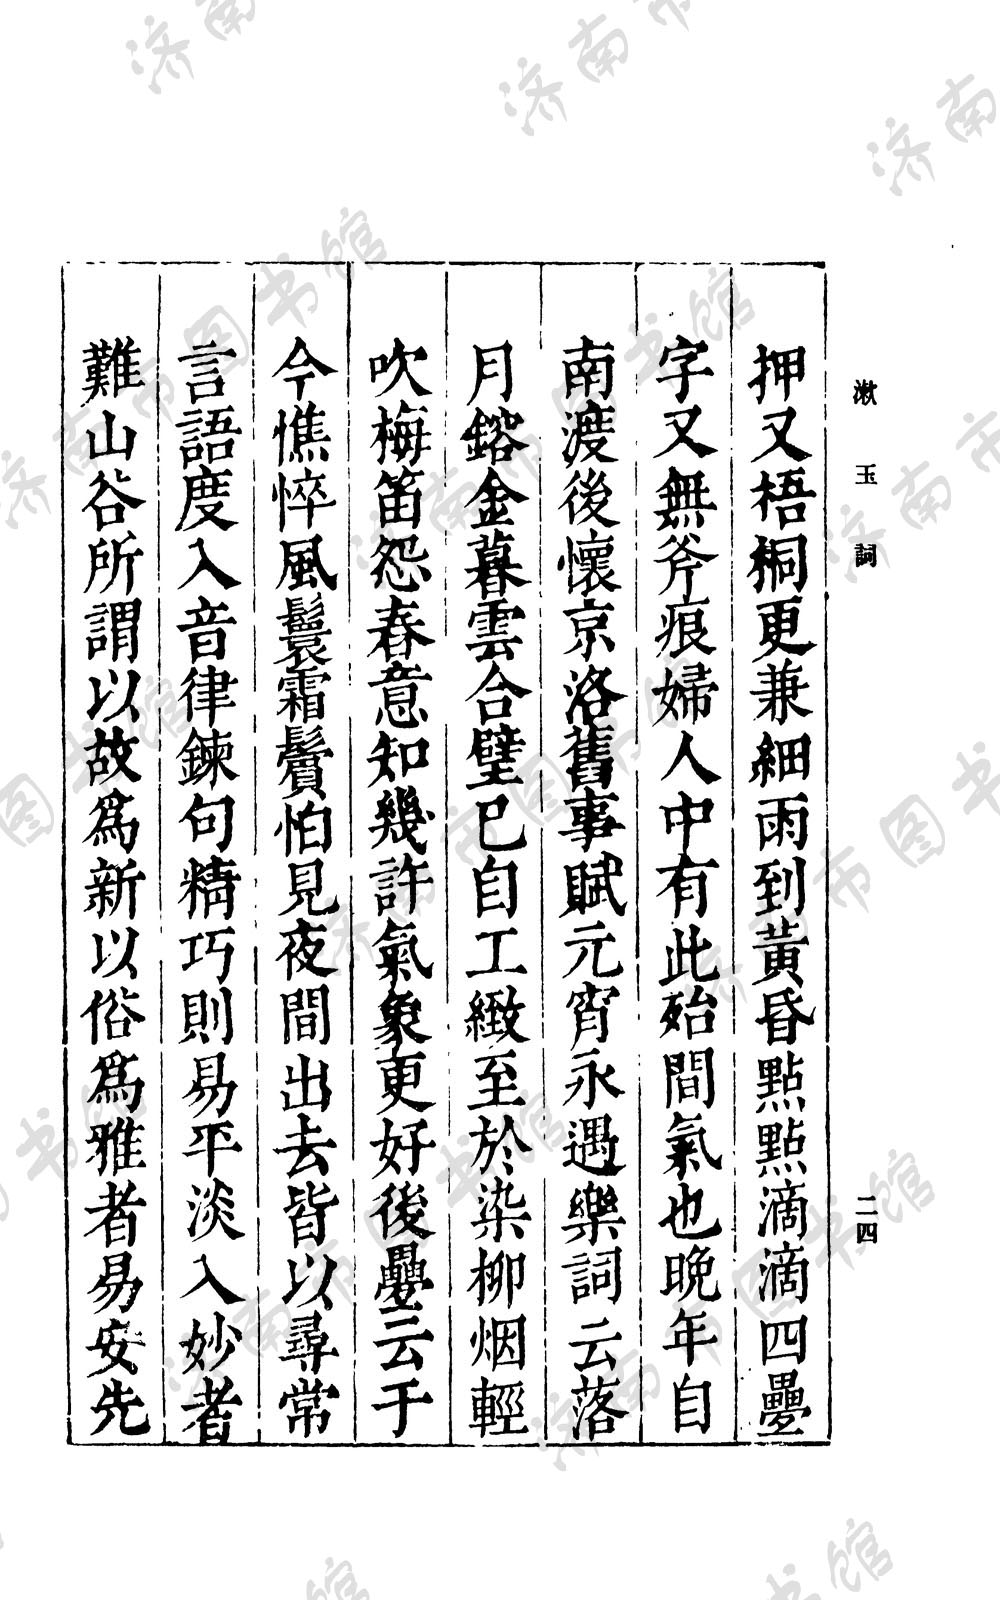 漱玉詞
二四
押又梧桐更兼細雨到黃昏點點滴滴四疊
字又無斧痕婦人中有此殆間氣也晚年自
南渡後懷京洛舊事賦元宵永遇樂詞云落
月鎔金暮雲合璧已自工緻至於染柳烟輕
吹梅笛怨春意知幾許氣象更好後疊云于
今憔悴風鬟霜鬢怕見夜間出去皆以尋常
言語度入音律鍊句精巧則易平淡入妙者
難山谷所謂以故為新以俗為雅者易安先
济南市图书馆